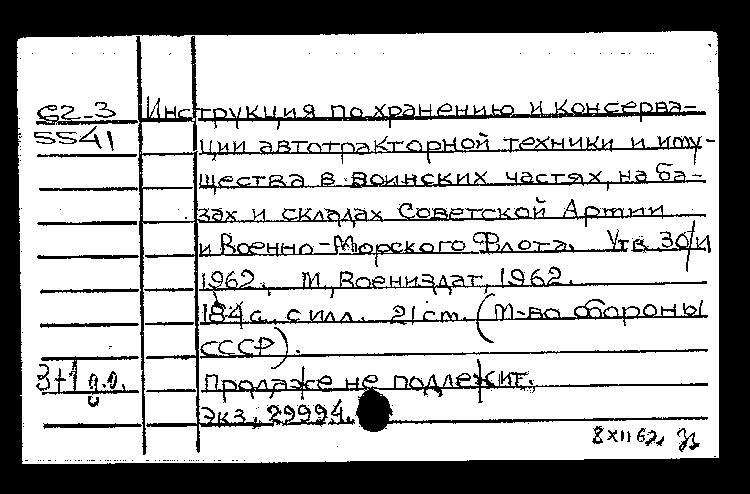 62-3 Инструкция по хранению и консерва-
5541 ции автотракторной техники и иму-
щества в воинских частях, на ба-
зах и складах Советской Армии
и Военно-Морского Флота. Утв. 30/VI
1962. М., Воениздат, 1962.
184 с. с илл. 21 см. (М-во обороны
СССР).
3+1 Продаже не подлежит.
Экз. 29994.
8 XII 62.